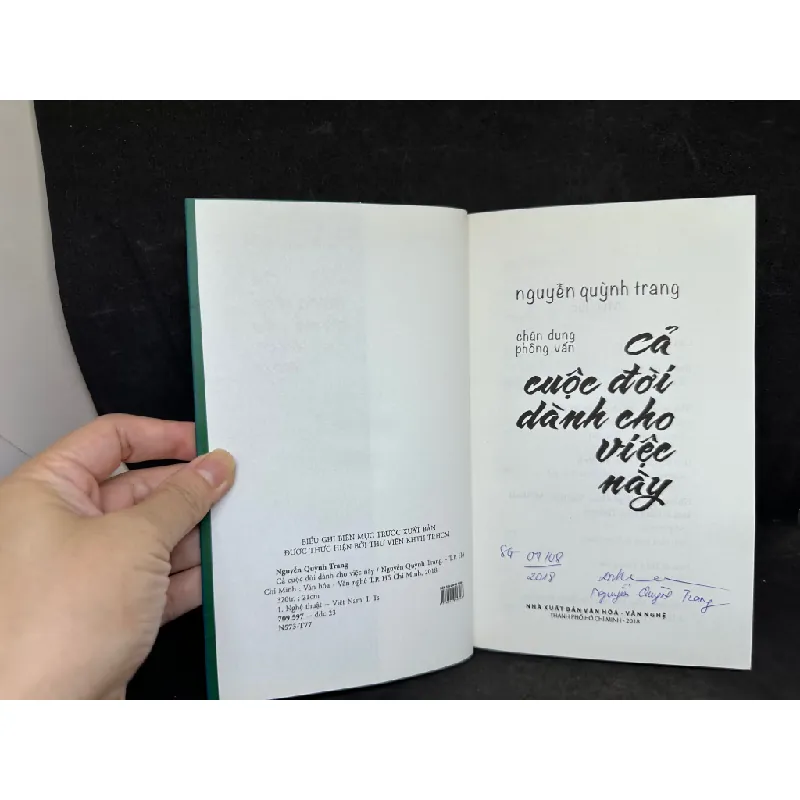 BIỂU GHI BIÊN MỤC TRƯỚC XUẤT BẢN
ĐƯỢC THỰC HIỆN BỞI THƯ VIỆN KHTH TP.HCM
Nguyễn Quỳnh Trang
Cả cuộc đời dành cho việc này / Nguyễn Quỳnh Trang. - T.P. Hồ
Chí Minh : Văn hóa - Văn nghệ T.P. Hồ Chí Minh, 2018
21cm
1. Nghệ thuật -- Việt Nam. I. Ts
709.597 -- ddc 23
N573-T77
nguyễn quỳnh trang
chân dung
phỏng vấn
cả
cuộc đời
dành cho
việc
này
SG
2018
Nguyễn Quỳnh Trang
NHÀ XUẤT BẢN VĂN HÓA - VĂN NGHỆ
THÀNH PHỐ HỒ CHÍ MINH - 2018